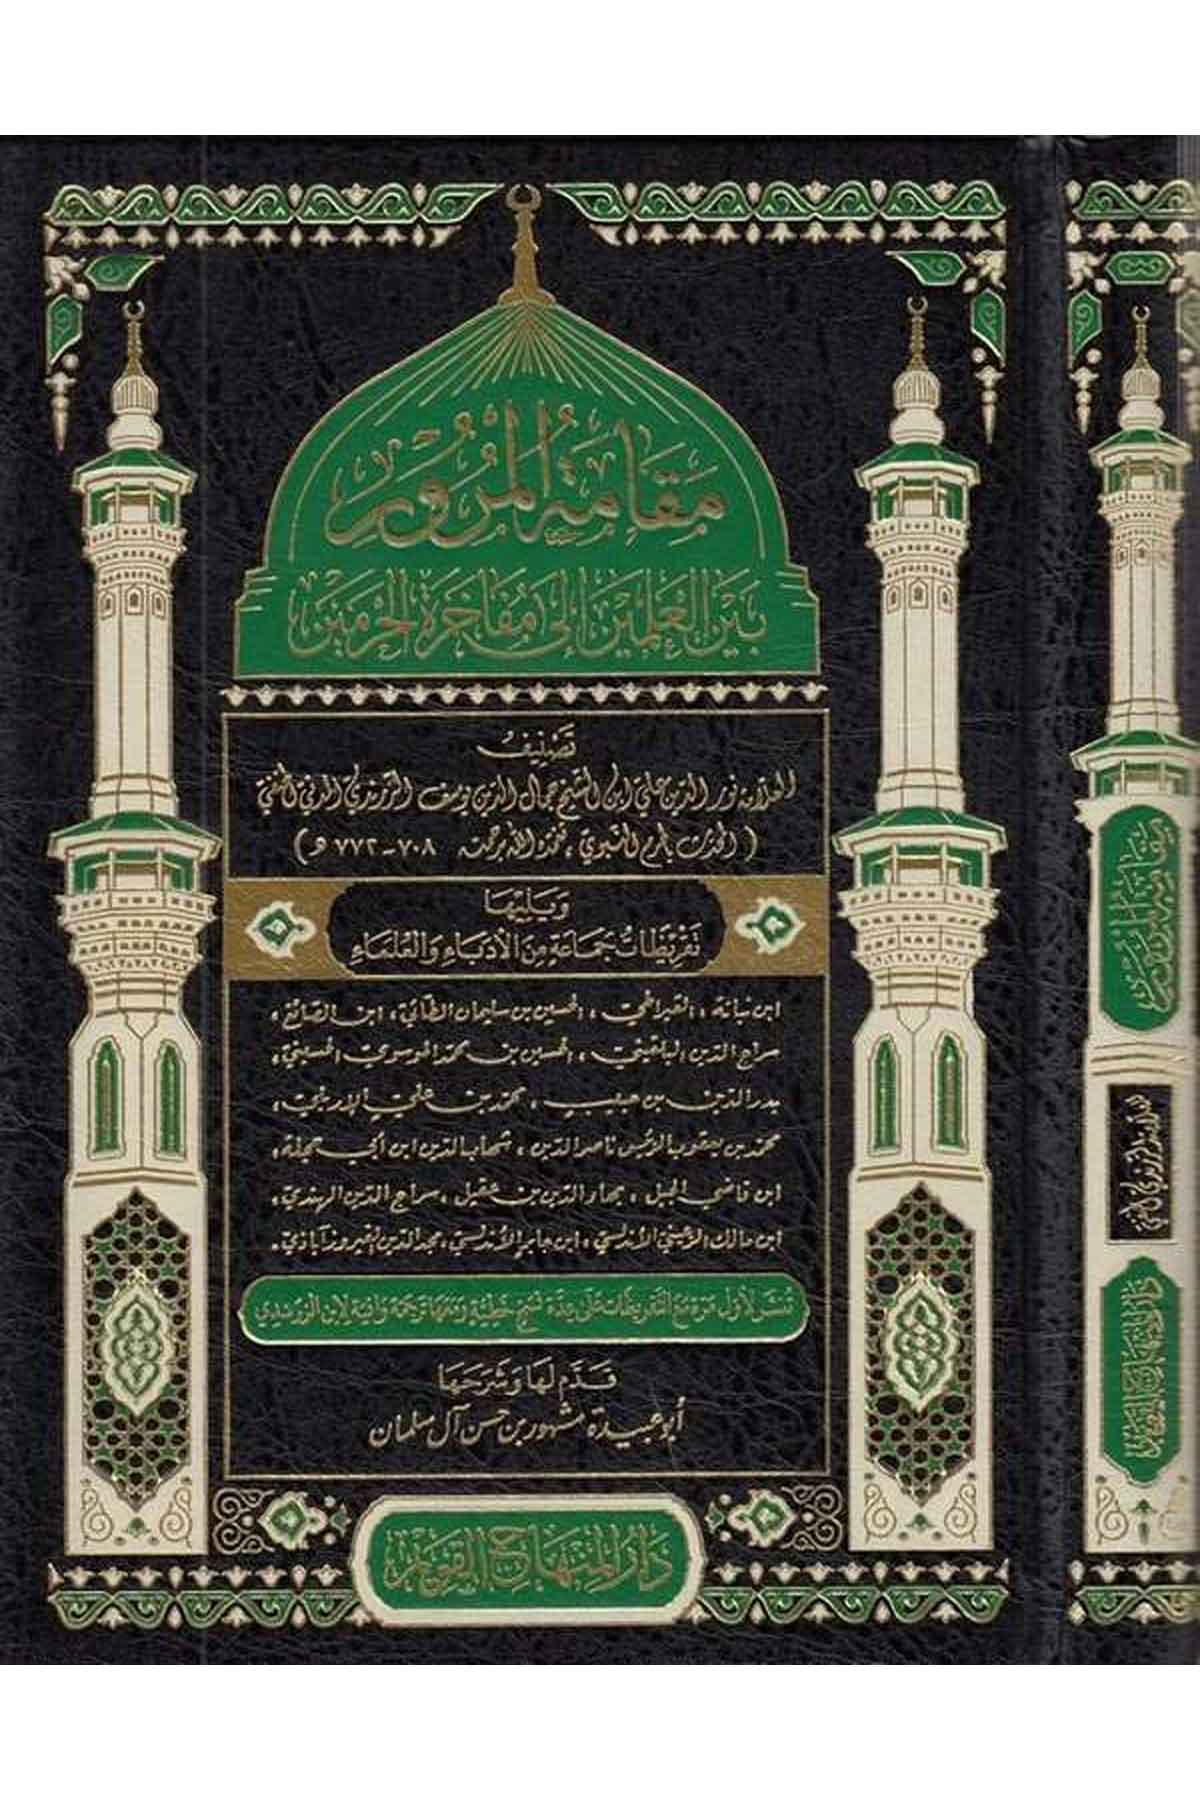 مَقَامَةُ الْمُرُوْرِ
بَيْنَ الْعَلَمَيْنِ إِلَى مُفَاخَرَةِ الْحَرَمَيْنِ
تَصْنِيفُ
العلامة نور الدين علي ابن الشيخ جمال الدين يوسف الزرندي المدني الحنفي
( المحدث بالحرم النبوي، تغمده الله برحمته ٧٠٨-٧٧٢ هـ )
وَيَلِيْهَا
تَقْرِيْظَاتُ جَمَاعَةٍ مِنَ الْأُدَبَاءِ وَالْعُلَمَاءِ
ابن نباتة، القيراطي، الحسين بن سليمان الطائي، ابن الصائغ،
سراج الدين البلقيني، الحسين بن محمد الموسوي الحسيني،
بدر الدين بن حبيب، محمد بن علي الإربلي،
محمد بن يعقوب الرئيس ناصر الدين، شهاب الدين ابن أبي حجلة،
ابن قاضي الجبل، بهاء الدين بن عقيل، سراج الدين الهندي،
ابن مالك الرعيني الأندلسي، ابن جابر الأندلسي، مجد الدين الفيروزآبادي.
تنشر لأول مرة مع التقريظات على عدة نسخ خطية ومعها ترجمة وافية لابن الزرندي
قَدَّمَ لَهَا وَشَرَحَهَا
أبو عبيدة مشهور بن حسن آل سلمان
دَارُ الْمِنْهَاجِ الْقَوِيْمِ
مقامة المرور
للعلامة الزرندي الحنفي
دار المنهاج القويم